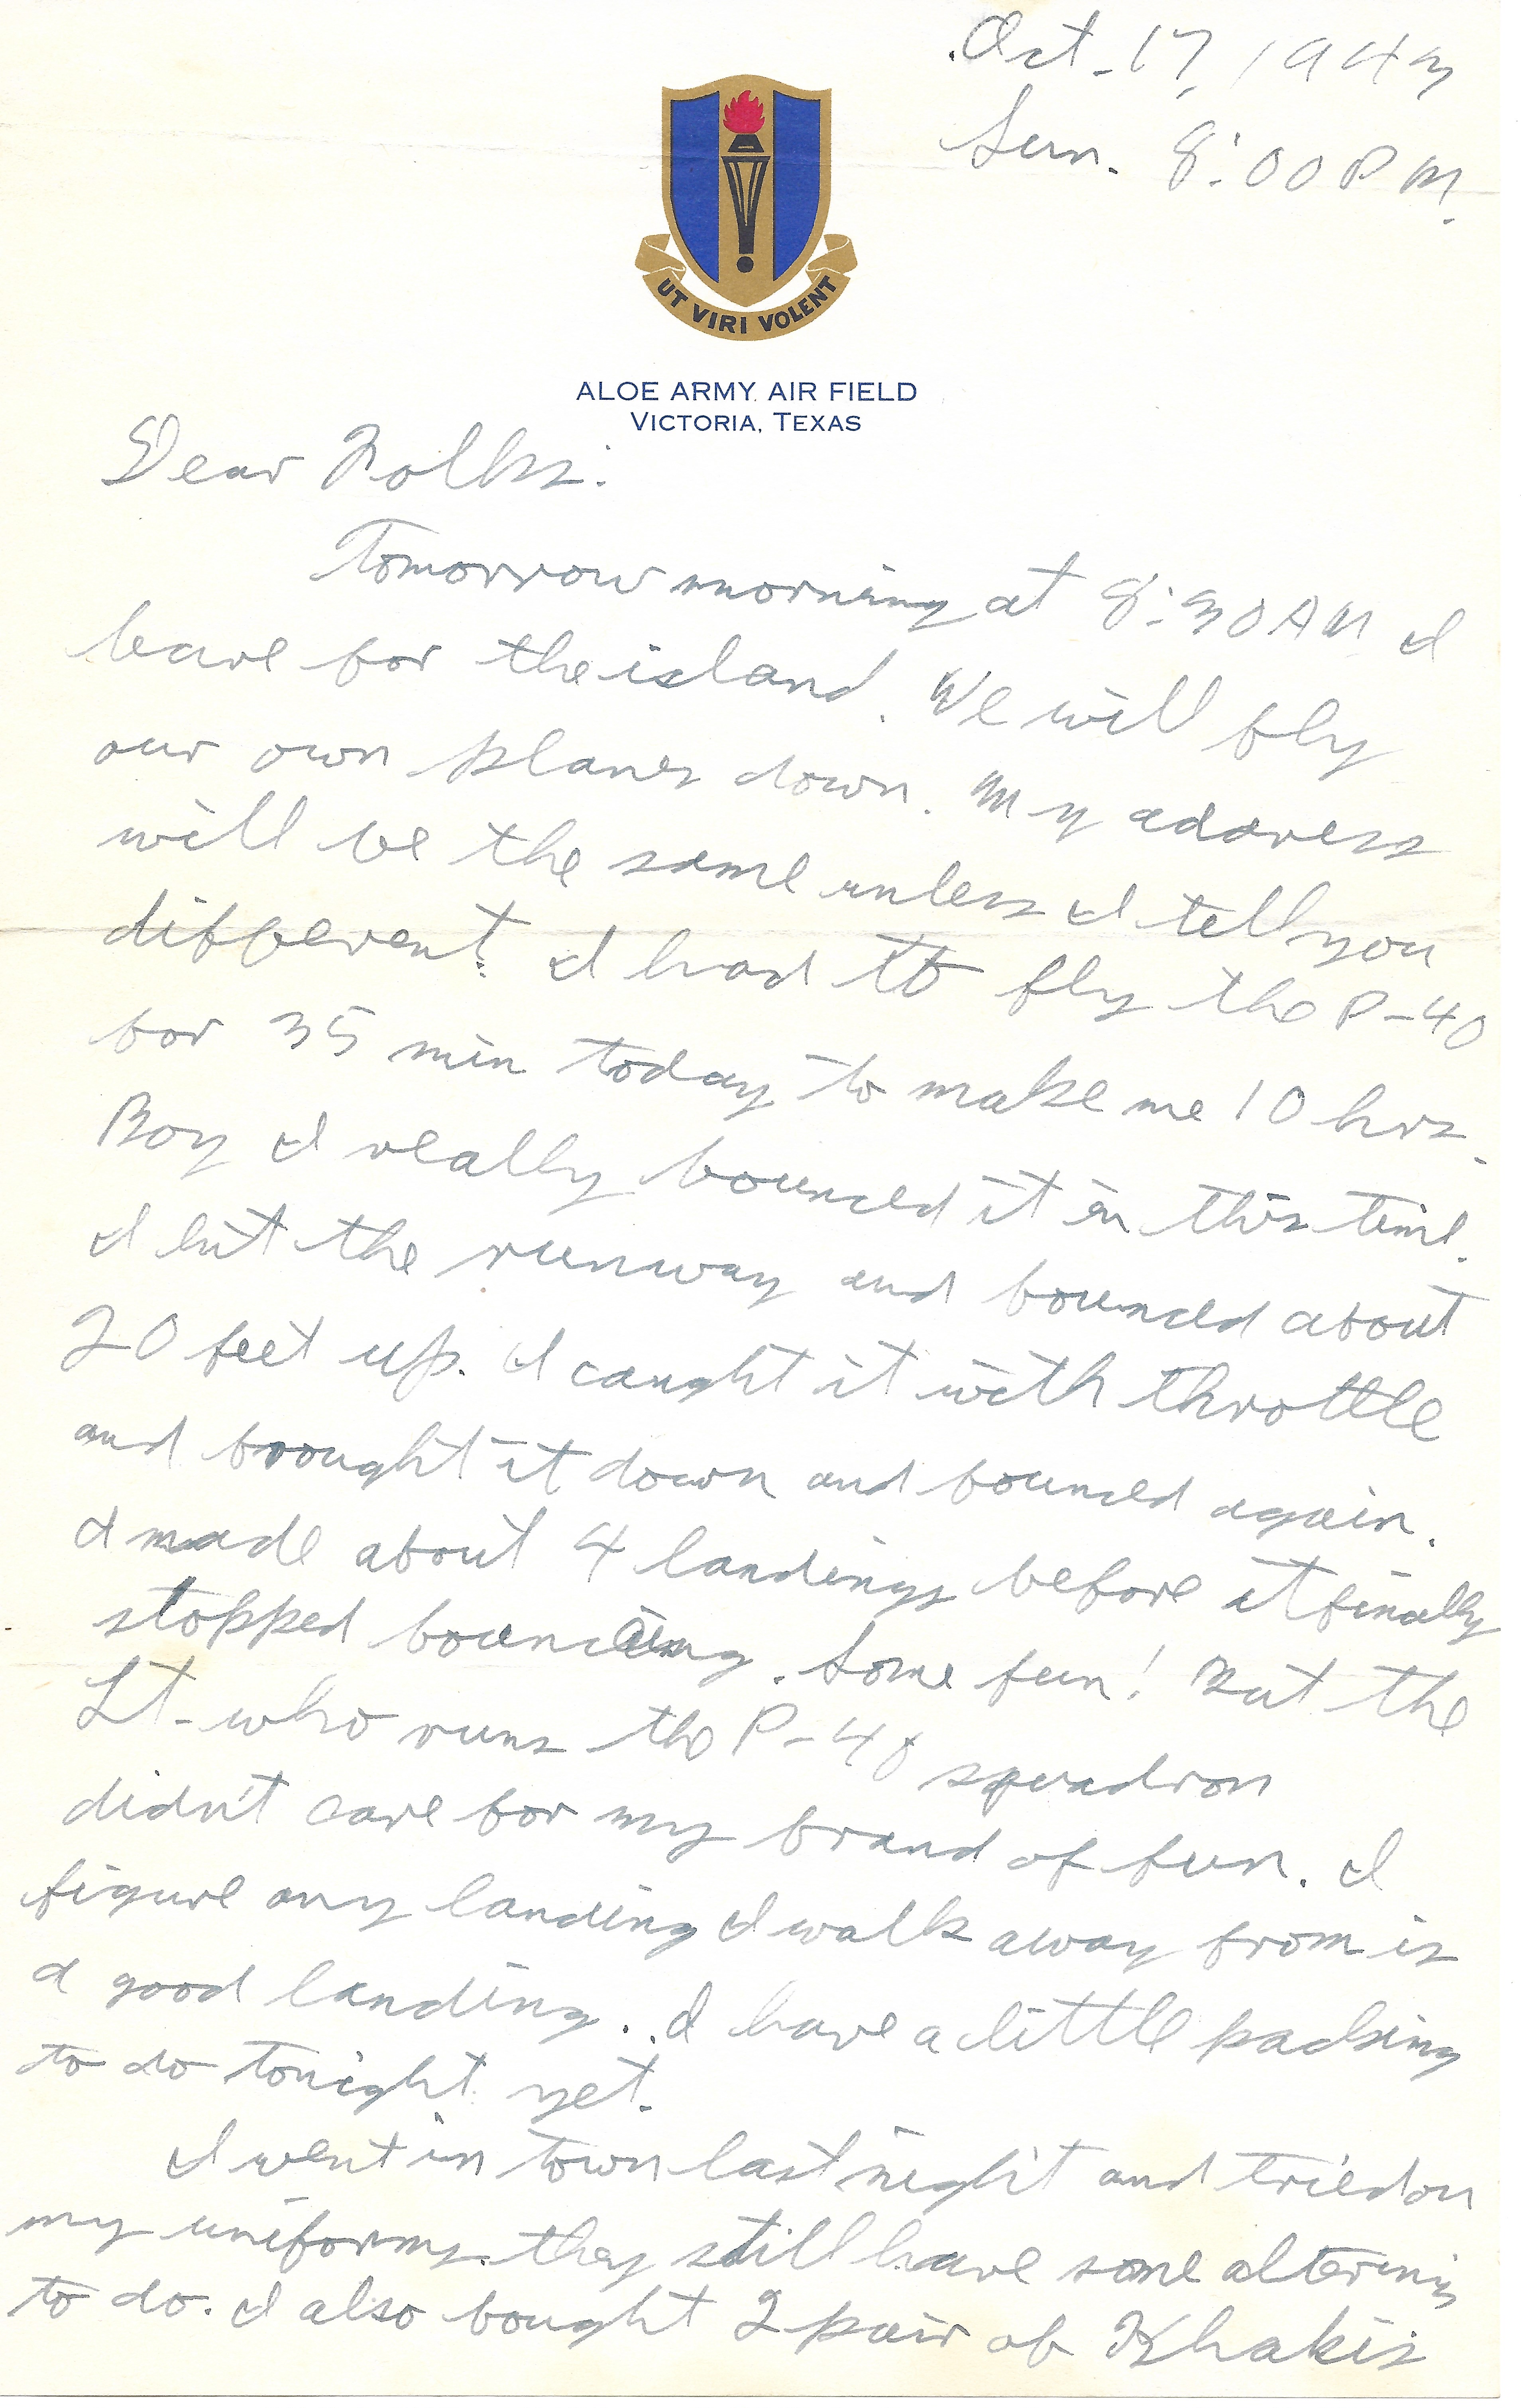 Oct. 17, 1943
Sun. 8:00 P.M.
UT VIRI VOLENT
ALOE ARMY AIR FIELD
VICTORIA, TEXAS
Dear Folks:
Tomorrow morning at 8:30 AM I
leave for the island. We will fly
our own planes down. My address
will be the same unless I tell you
different. I had to fly the P-40
for 35 min today to make me 10 hrs.
Boy I really bounced it in this time.
I hit the runway and bounced about
20 feet up. I caught it with throttle
and brought it down and bounced again.
I made about 4 landings before it finally
stopped bouncing. Some fun! But the
Lt. who runs the P-40 squadron
didn't care for my brand of fun. I
figure any landing I walk away from is
a good landing. I have a little packing
to do tonight yet.
I went in town last night and tried on
my uniforms. they still have some altering
to do. I also bought 2 pair of Khakis